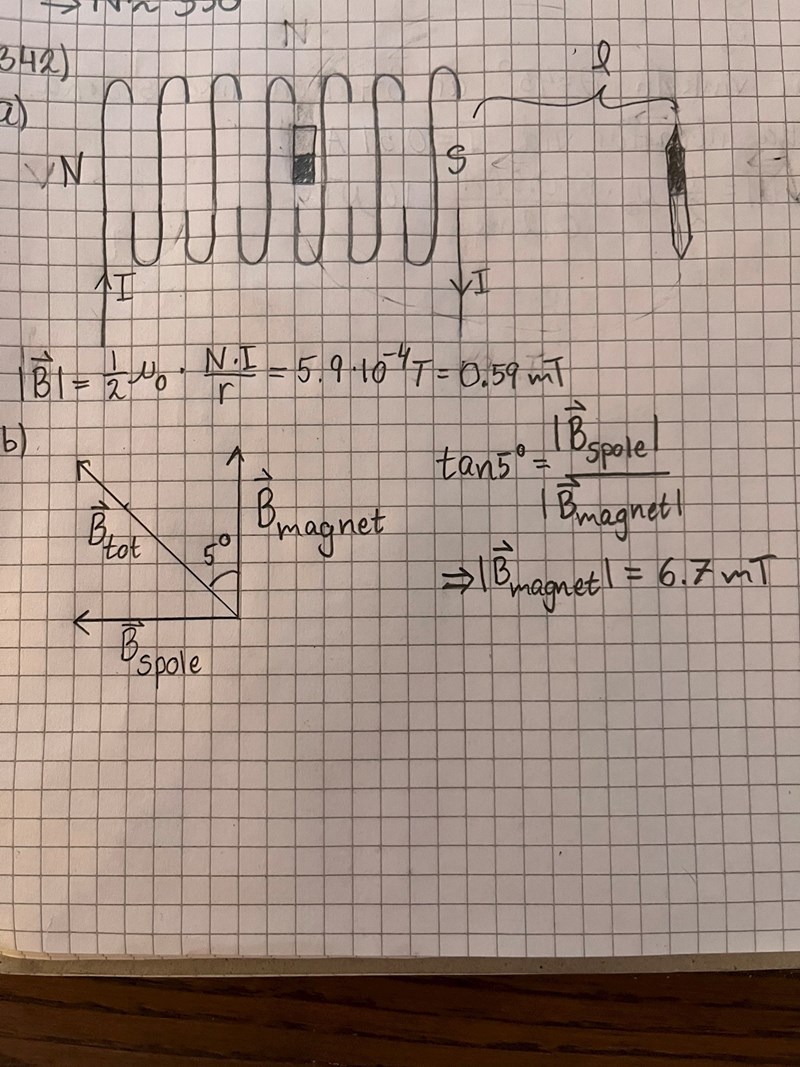 → N ≈ 550
342)
a)
N
l
VN
S
I
I
|B⃗| = 1/2 μ₀ · N·I/r = 5.9·10⁻⁴T = 0.59 mT
b)
B⃗tot
5°
B⃗magnet
B⃗spole
tan5° = |B⃗spole| / |B⃗magnet|
⇒ |B⃗magnet| = 6.7 mT